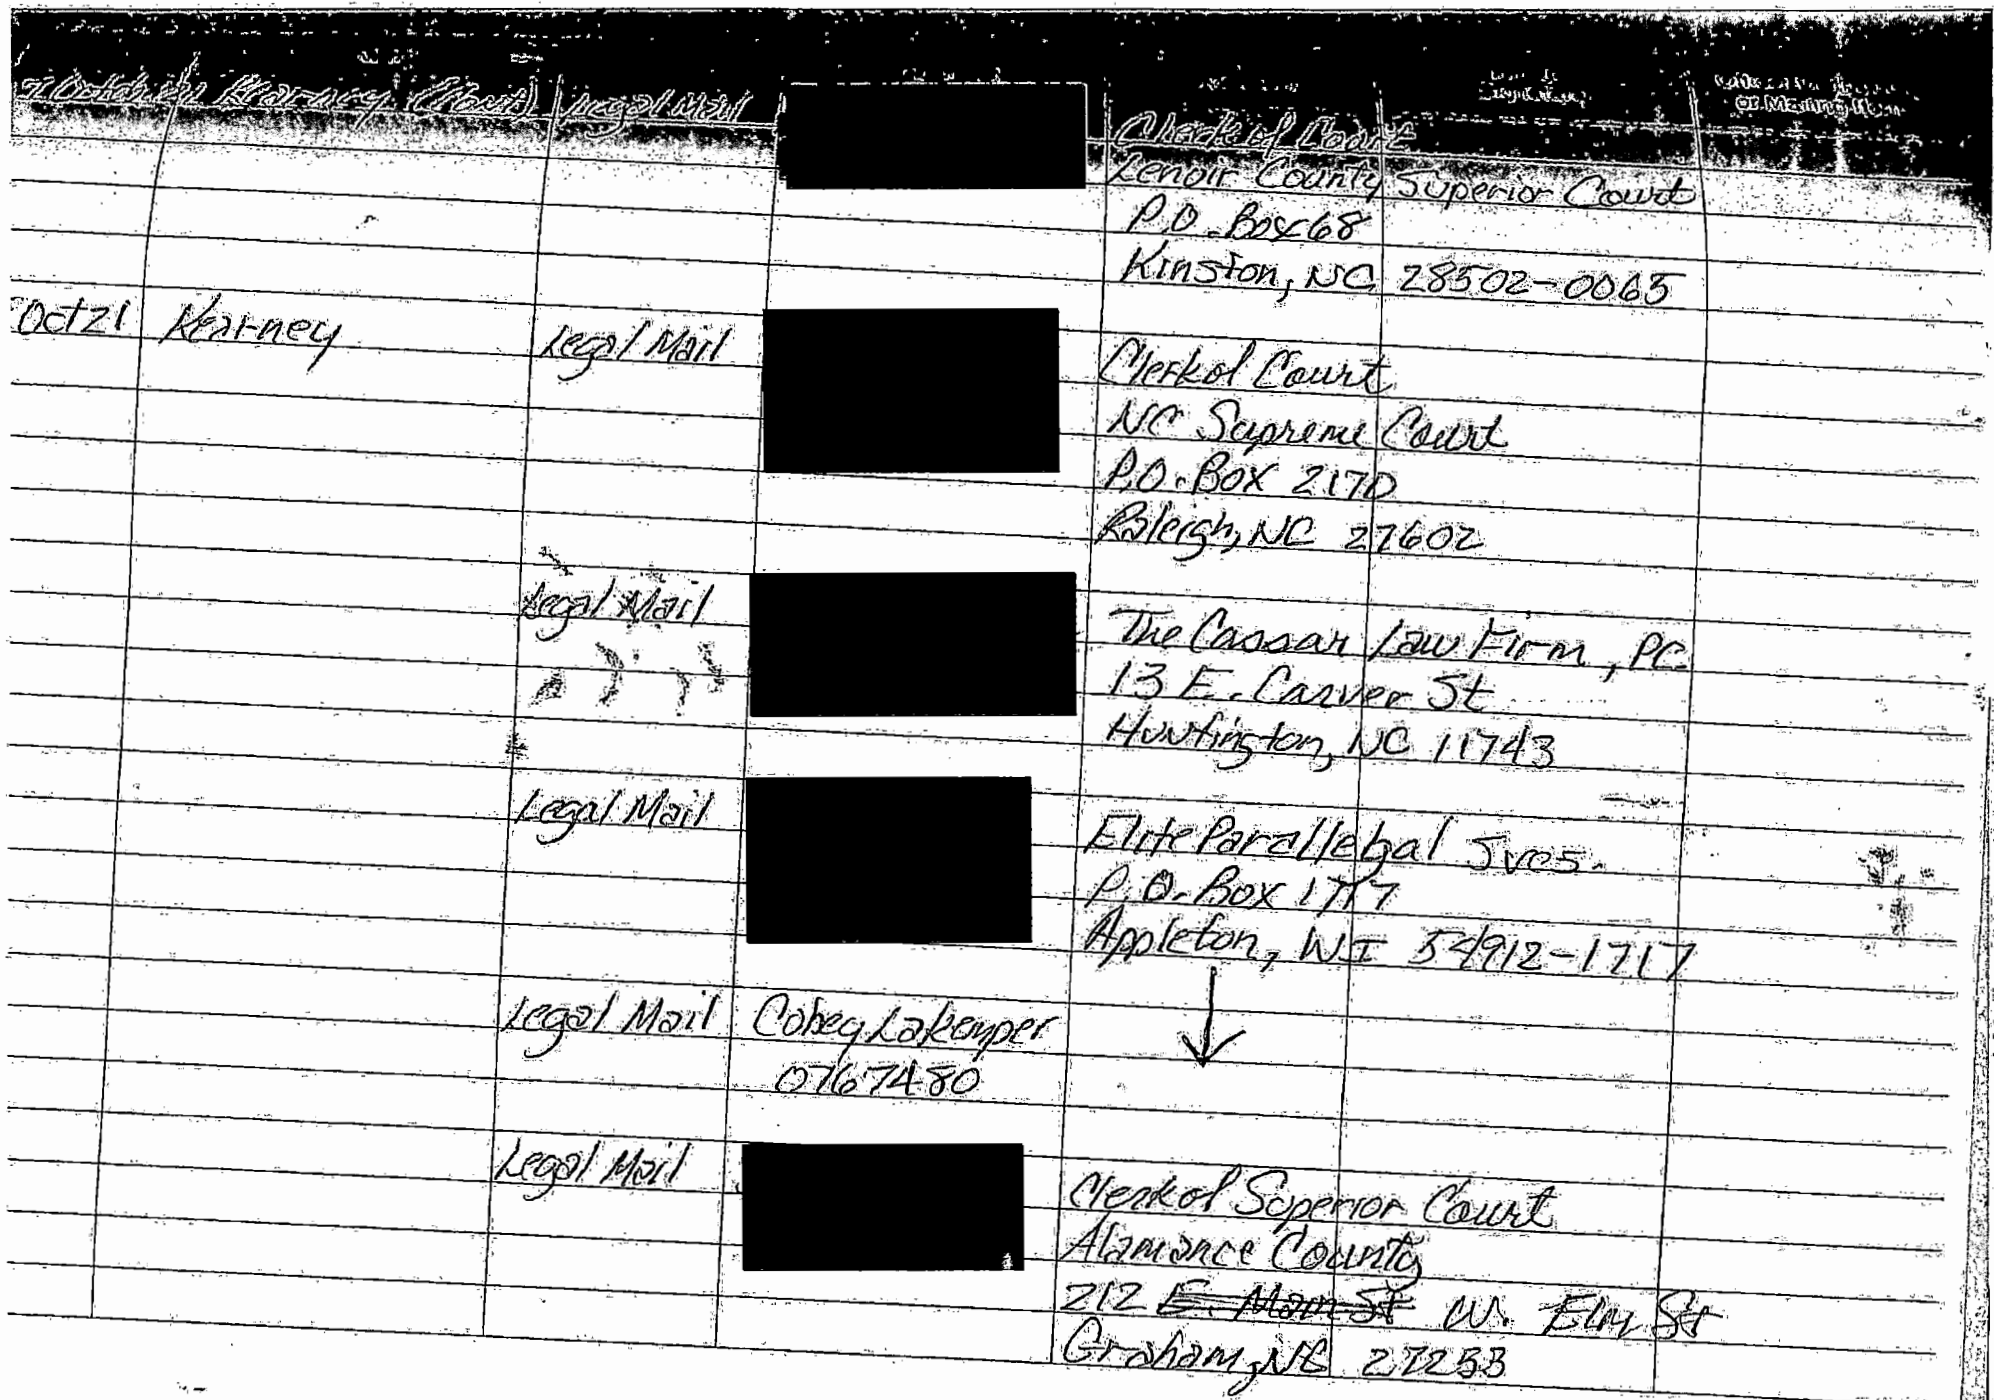 Kearney (Cont) Legal Mail
or Mailing
Clerk of Court
Lenoir County Superior Court
P.O. Box 68
Kinston, NC 28502-0065
Oct 21 Kearney Legal Mail
Clerk of Court
NC Supreme Court
P.O. Box 2170
Raleigh, NC 27602
Legal Mail
The Cassar Law Firm, PC
13 E. Carver St
Huntington, NC 11743
Legal Mail
Elite Parallegal Svcs.
P.O. Box 1717
Appleton, WI 54912-1717
Legal Mail Cobey Lakemper
0767480
Legal Mail
Clerk of Superior Court
Alamance County
212 E. Main St W. Elm St
Graham, NC 27253